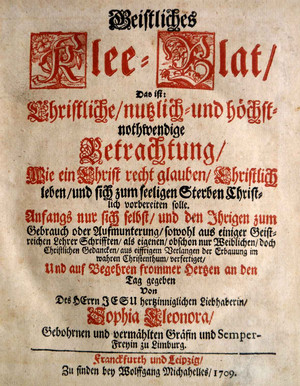 Geistliches
Klee-Blat/
Das ist:
Christliche/nutzlich-und höchst-
nothwendige
Betrachtung/
Wie ein Christ recht glauben/Christlich
leben/und sich zum seeligen Sterben Christ-
lich vorbereiten solle.
Anfangs nur sich selbst/und den Ihrigen zum
Gebrauch oder Aufmunterung/sowohl aus einiger Geist-
reichen Lehrer Schrifften/als eigenen/obschon nur Weiblichen/doch
Christlichen Gedancken/aus eiffrigem Verlangen der Erbauung im
wahren Christenthum/verfertiget/
Und auf Begehren frommer Hertzen an den
Tag gegeben
Von
Des HErrn JESU hertzinniglichen Liebhaberin/
Sophia Eleonora/
Gebohrnen und vermählten Gräfin und Semper-
Freyin zu Limburg.
Franckfurth und Leipzig/
Zu finden bey Wolffgang Michahelles/1709.